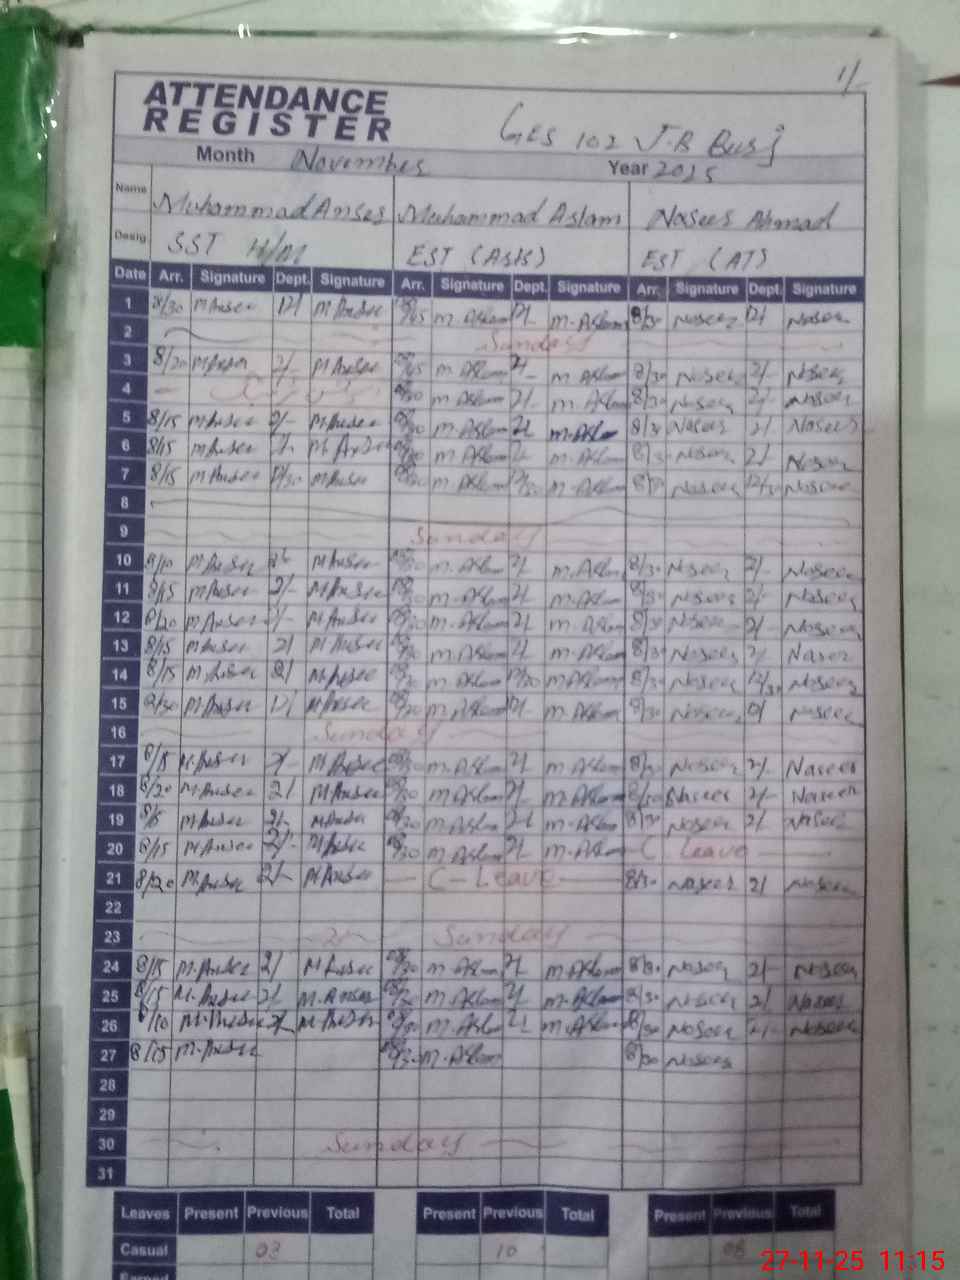 1/-
ATTENDANCE
REGISTER
GES 102 J.B Burj
Month November Year 2025
Name Muhammad Ansar Muhammad Aslam Naseer Ahmad
Desig SST H/M EST (AT)
Date Arr. Signature Dept. Signature Arr. Signature Dept. Signature Arr. Signature Dept. Signature
1 8/30 M Ansar 12/ M Ansar M. Aslam 12/ M. Aslam 8/30 Naseer 12/ Naseer
2 Sunday
3 8/20 M Ansar 2/- M Ansar M. Aslam 2/- M. Aslam 8/30 Naseer 2/- Naseer
4 M. Aslam 2/- M. Aslam 8/30 Naseer 2/- Naseer
5 8/15 M Ansar 2/- M. Ansar M. Aslam 2/- M. Aslam 8/30 Naseer 2/ Naseer
6 8/15 M Ansar 2/- M Ansar M. Aslam 2/- M. Aslam 8/30 Naseer 2/ Naseer
7 8/15 M Ansar 12/30 M Ansar M. Aslam 12/30 M. Aslam 8/30 Naseer 12/30 Naseer
8
9 Sunday
10 8/10 M. Ansar 2/- M Ansar M. Aslam 2/- M. Aslam 8/30 Naseer 2/- Naseer
11 8/15 M Ansar 2/- M Ansar M. Aslam 2/- M. Aslam 8/30 Naseer 2/- Naseer
12 8/20 M Ansar 2/- M Ansar M. Aslam 2/- M. Aslam 8/30 Naseer 2/- Naseer
13 8/15 M Ansar 2/ M Ansar M. Aslam 2/- M. Aslam 8/30 Naseer 2/- Naseer
14 8/15 M. Ansar 2/ M. Ansar M. Aslam 12/30 M. Aslam 8/30 Naseer 12/30 Naseer
15 8/30 M Ansar 12/ M Ansar M. Aslam 12/- M. Aslam 8/30 Naseer 12/ Naseer
16 Sunday
17 8/15 M. Ansar 2/- M. Ansar M. Aslam 2/- M. Aslam 8/30 Naseer 2/- Naseer
18 8/20 M Ansar 2/ M Ansar M. Aslam 2/- M. Aslam 8/30 Naseer 2/- Naseer
19 8/15 M Ansar 2/- M Ansar M. Aslam 2/- M. Aslam 8/30 Naseer 2/ Naseer
20 8/15 M Ansar 2/- M Ansar M. Aslam 2/- M. Aslam C. Leave
21 8/20 M Ansar 2/- M Ansar C - Leave 8/30 Naseer 2/ Naseer
22
23 Sunday
24 8/15 M. Ansar 2/ M Ansar M. Aslam 2/- M. Aslam 8/30 Naseer 2/- Naseer
25 8/15 M. Ansar 2/ M. Ansar M. Aslam 2/- M. Aslam 8/30 Naseer 2/ Naseer
26 8/10 M. Ansar 2/- M Ansar M. Aslam 2/- M. Aslam 8/30 Naseer 2/- Naseer
27 8/15 M. Ansar M. Aslam 8/30 Naseer
28
29
30 Sunday
31
Leaves Present Previous Total Present Previous Total Present Previous Total
Casual 03 10 08
Earned
27-11-25 11:15